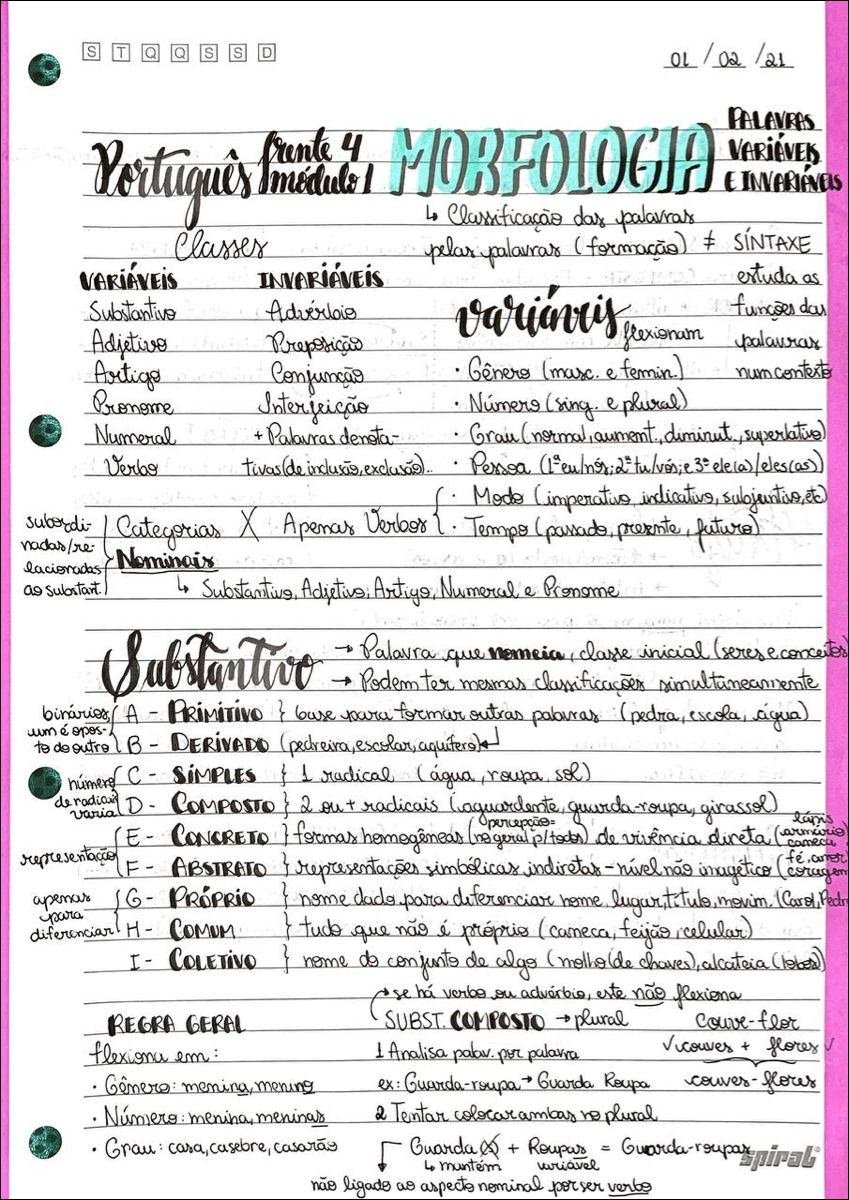 S T Q Q S S D
01 / 02 / 21
Português frente 4 módulo 1 MORFOLOGIA PALAVRAS VARIÁVEIS E INVARIÁVEIS
↳ Classificação das palavras
pelas palavras (formação) ≠ SÍNTAXE
estuda as
funções das
palavras
num contexto
Classes
VARIÁVEIS INVARIÁVEIS
Substantivo Advérbio
Adjetivo Preposição
Artigo Conjunção
Pronome Interjeição
Numeral + Palavras denota-
Verbo tivas (de inclusão, exclusão)..
variáveis flexionam
· Gênero (masc. e femin.)
· Número (sing. e plural)
· Grau (normal, aument., diminut., superlativo)
· Pessoa (1ª eu/nós; 2ª tu/vós; e 3ª ele(a)/eles(as))
· Modo (imperativo, indicativo, subjuntivo, etc)
· Tempo (passado, presente, futuro)
subordi-
nadas/re-
lacionadas
ao substant.
Categorias X Apenas Verbos
Nominais
↳ Substantivo, Adjetivo, Artigo, Numeral e Pronome
Substantivo → Palavra que nomeia, classe inicial (seres e conceitos)
→ Podem ter mesmas classificações simultaneamente
binários,
um é opos-
to do outro
A - PRIMITIVO } base para formar outras palavras (pedra, escola, água)
B - DERIVADO (pedreira, escolar, aquífero)
número
de radicais
varia
C - SIMPLES } 1 radical (água, roupa, sol)
D - COMPOSTO } 2 ou + radicais (aguardente, guarda-roupa, girassol)
representação
E - CONCRETO } formas homogêneas (percepção = no geral p/ todos) de vivência direta (lápis, armário, caneca
F - ABSTRATO } representações simbólicas, indiretas - nível não imagético (fé, amor, coragem
apenas
para
diferenciar
G - PRÓPRIO } nome dado para diferenciar nome, lugar, título, movim. (Carol, Pedr
H - COMUM } tudo que não é próprio (caneca, feijão, celular)
I - COLETIVO } nome do conjunto de algo (molho (de chaves), alcateia (lobos)
REGRA GERAL
flexiona em:
· Gênero: menina, menino
· Número: menina, meninas
· Grau: casa, casebre, casarão
se há verbo ou advérbio, este não flexiona
SUBST. COMPOSTO → plural
1 Analisa palav. por palavra
ex: Guarda-roupa → Guarda Roupa
2 Tentar colocar ambas no plural
Guarda (s) + Roupas = Guarda-roupas
↳ mantém variável
não ligado ao aspecto nominal por ser verbo
Couve-flor
√ couves + flores √
couves-flores
spiral